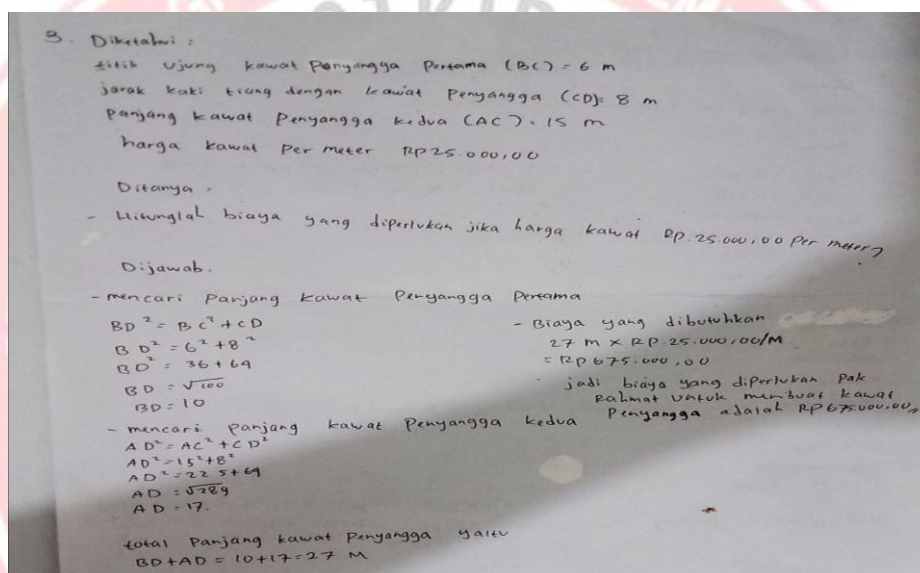 3. Diketahui :
titik Ujung kawat Penyangga Pertama (BC) = 6 m
jarak kaki tiang dengan kawat Penyangga (CD) = 8 m
Panjang kawat Penyangga kedua (AC) = 15 m
harga kawat Per meter RP 25.000,00
Ditanya :
- Hitunglah biaya yang diperlukan jika harga kawat RP. 25.000,00 Per meter ?
Dijawab.
- mencari Panjang kawat Penyangga Pertama
BD² = BC² + CD
BD² = 6² + 8²
BD² = 36 + 64
BD = √100
BD = 10
- mencari Panjang kawat Penyangga kedua
AD² = AC² + CD²
AD² = 15² + 8²
AD² = 225 + 64
AD = √289
AD = 17.
total Panjang kawat Penyangga yaitu
BD + AD = 10 + 17 = 27 M
- Biaya yang dibutuhkan
27 m × RP. 25.000,00/M
= RP 675.000,00
jadi biaya yang diperlukan Pak
Rahmat Untuk membuat kawat
Penyangga adalah RP 675.000,00,